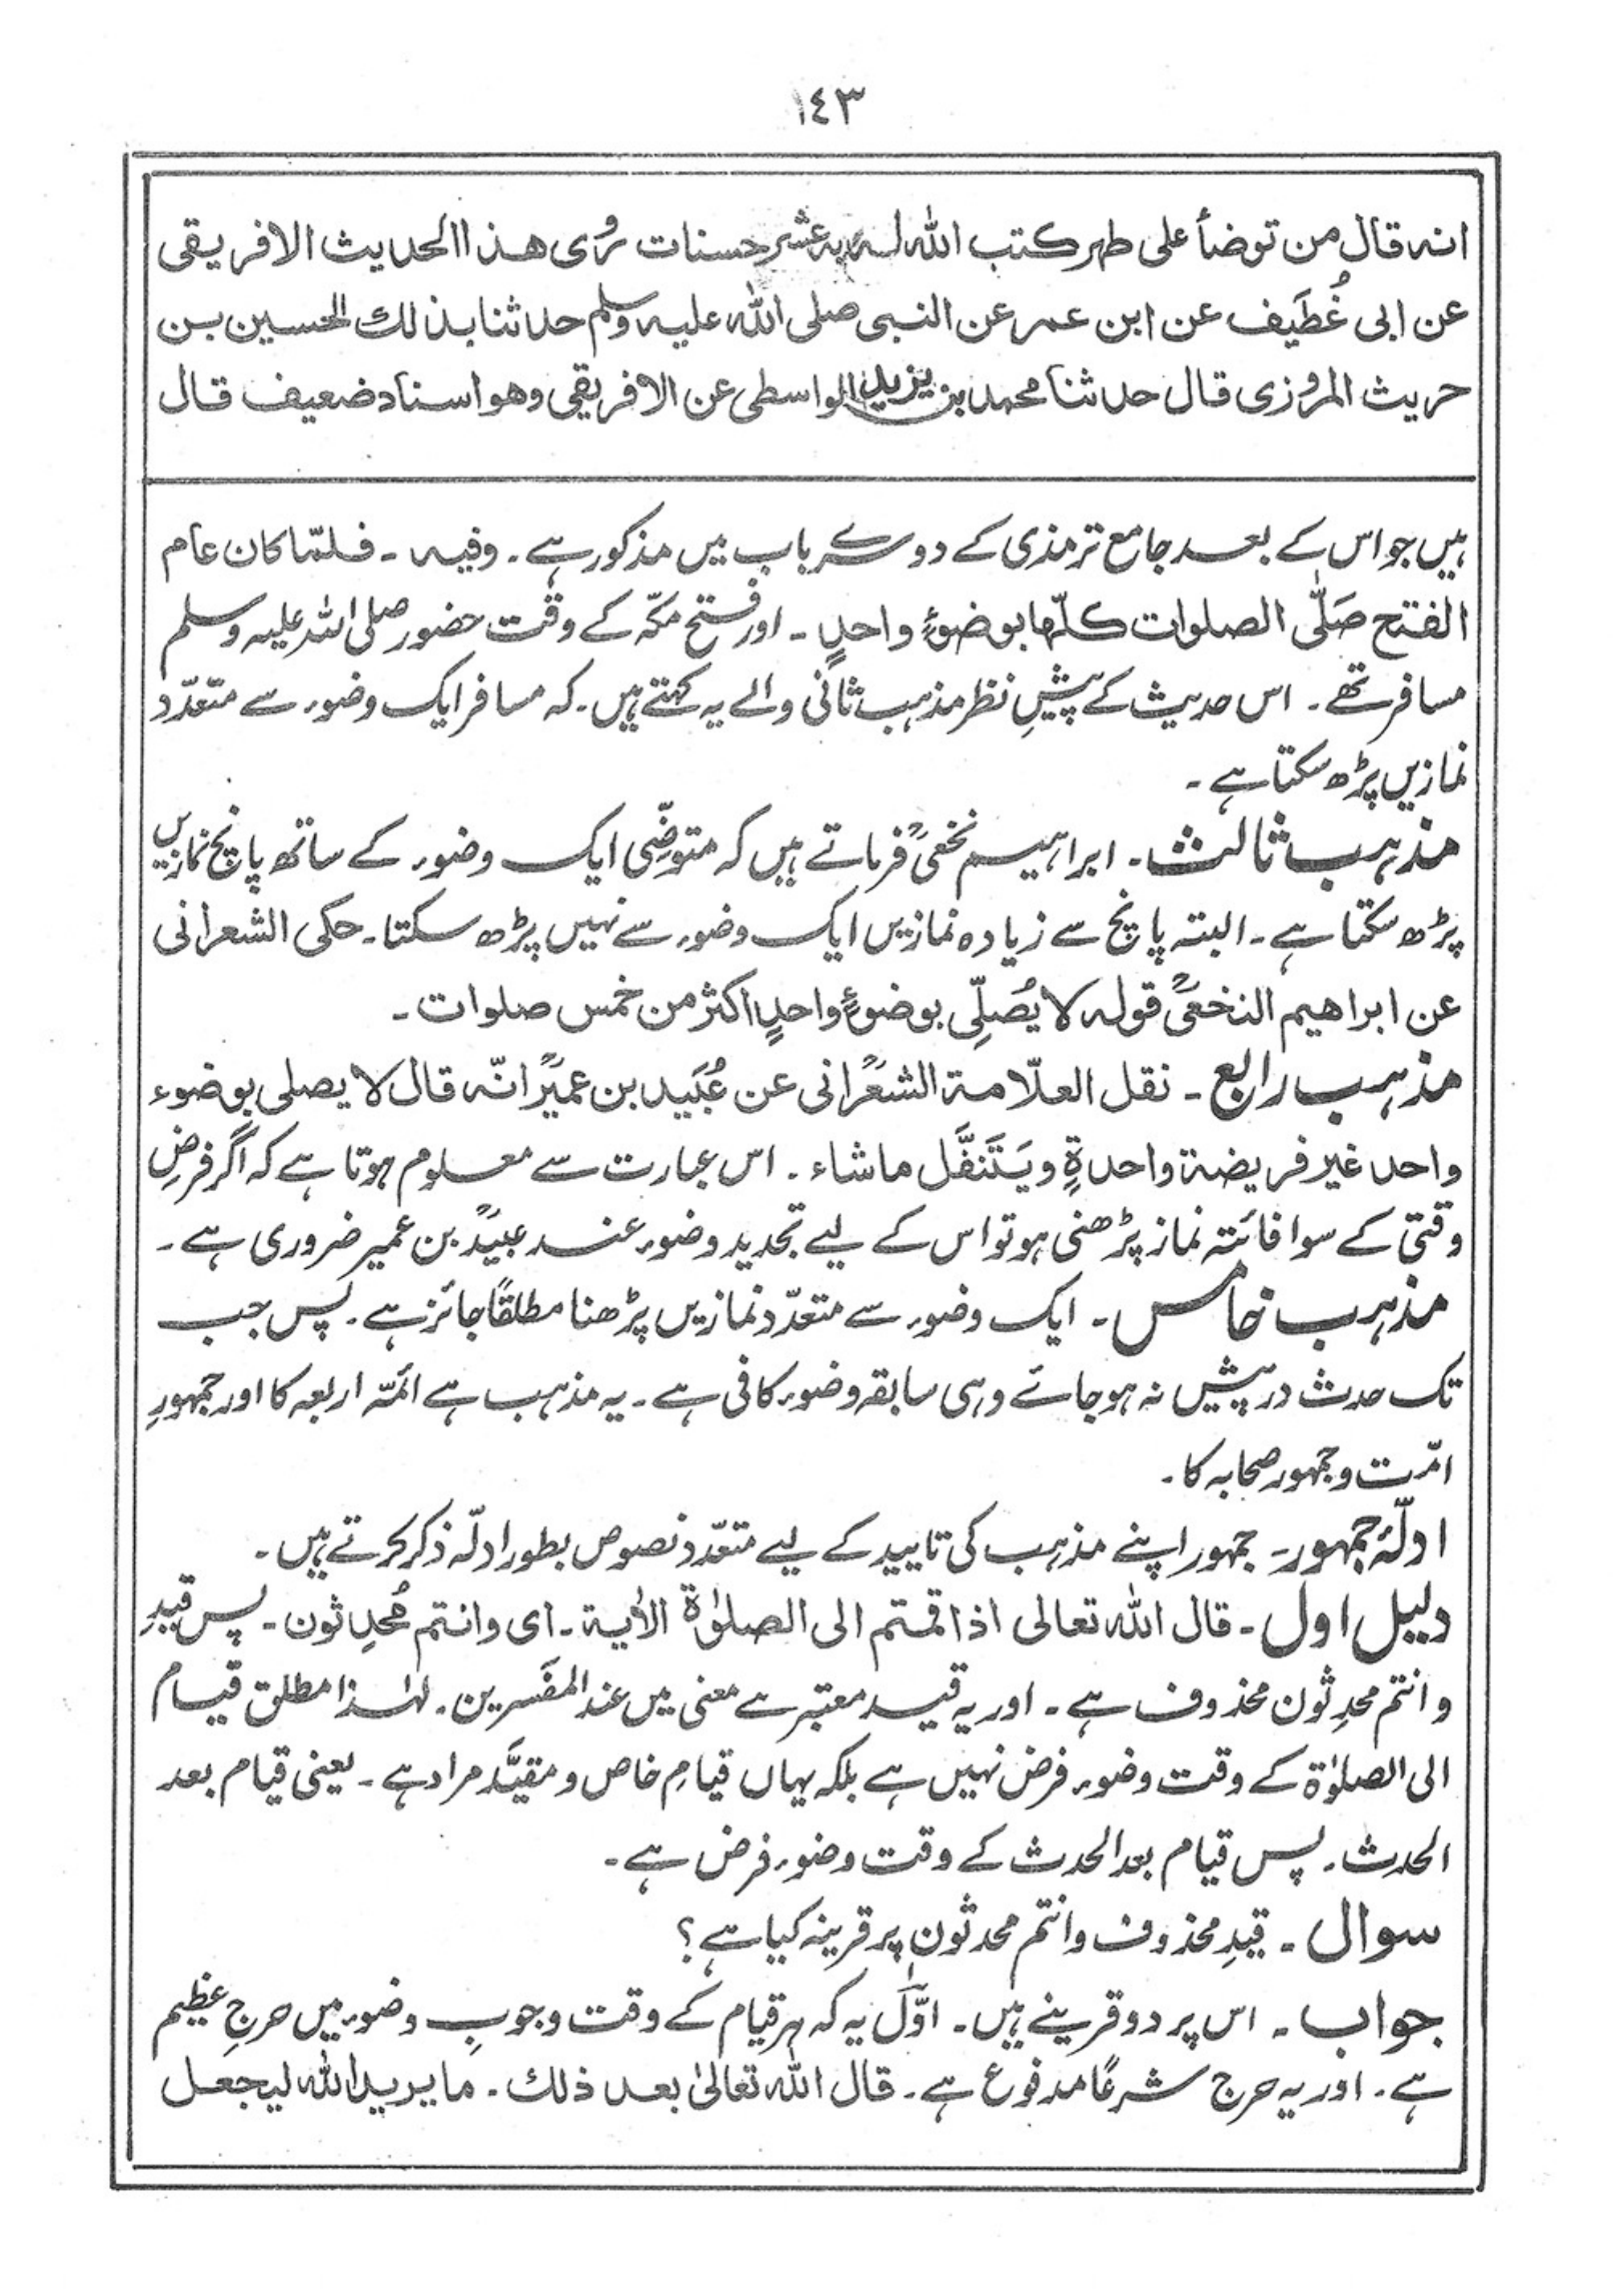 ١٤٣
انه قال من توضأ على طهر كتب الله له به عشر حسنات رُوى هذا الحديث الافريقى
عن ابى غُطَيف عن ابن عمر عن النبى صلى الله عليه وسلم حدثنا بذلك الحسين بن
حريث المروزى قال حدثنا محمد بن يزيد الواسطى عن الافريقى وهو اسناد ضعيف قال
ہیں جو اس کے بعد جامع ترمذی کے دوسرے باب میں مذکور ہے ۔ وفیہ ۔ فلمّا کان عام
الفتح صَلّٰی الصلوات کلّها بوضوءٍ واحدٍ ۔ اور فتح مکّہ کے وقت حضور صلی اللہ علیہ وسلم
مسافر تھے ۔ اس حدیث کے پیشِ نظر مذہب ثانی والے یہ کہتے ہیں ۔ کہ مسافر ایک وضوء سے متعدّد
نمازیں پڑھ سکتا ہے ۔
مذہب ثالث ۔ ابراہیم نخعیؒ فرماتے ہیں کہ متوضّی ایک وضوء کے ساتھ پانچ نمازیں
پڑھ سکتا ہے ۔ البتہ پانچ سے زیادہ نمازیں ایک وضوء سے نہیں پڑھ سکتا ۔ حکی الشعرانی
عن ابراهیم النخعیؒ قوله لا یُصَلِّی بوضوءٍ واحدٍ اکثر من خمس صلوات ۔
مذہب رابع ۔ نقل العلّامة الشعرانیؒ عن عُبَید بن عمیرؒ انّه قال لا یصلی بوضوء
واحد غیر فریضة واحدةٍ ویَتَنفَّل ماشاء ۔ اس عبارت سے معلوم ہوتا ہے کہ اگر فرضِ
وقتی کے سوا فائتہ نماز پڑھنی ہو تو اس کے لیے تجدید وضوء عند عبیدؒ بن عمیر ضروری ہے ۔
مذہب خامس ۔ ایک وضوء سے متعدّد نمازیں پڑھنا مطلقاً جائز ہے ۔ پس جب
تک حدث درپیش نہ ہوجائے وہی سابقہ وضوء کافی ہے ۔ یہ مذہب ہے ائمّہ اربعہ کا اور جمہورِ
امّت و جمہور صحابہ کا ۔
ادلّۂ جمہور ۔ جمہور اپنے مذہب کی تایید کے لیے متعدّد نصوص بطور ادلّہ ذکر کرتے ہیں ۔
دلیل اول ۔ قال الله تعالی اذا قمتم الی الصلوٰة الاٰیة ۔ ای وانتم مُحدِثون ۔ پس قیدِ
وانتم محدِثون محذوف ہے ۔ اور یہ قید معتبر ہے معنی میں عند المفسّرین ۔ لہٰذا مطلق قیام
الی الصلوٰة کے وقت وضوء فرض نہیں ہے بلکہ یہاں قیامِ خاص و مقیَّد مراد ہے ۔ یعنی قیام بعد
الحدث ۔ پس قیام بعد الحدث کے وقت وضوء فرض ہے ۔
سوال ۔ قیدِ محذوف وانتم محدثون پر قرینہ کیا ہے ؟
جواب ۔ اس پر دو قرینے ہیں ۔ اوّل یہ کہ ہر قیام کے وقت وجوبِ وضوء میں حرجِ عظیم
ہے ۔ اور یہ حرج شرعًا مدفوع ہے ۔ قال الله تعالیٰ بعد ذلك ۔ ما یرید الله لیجعل